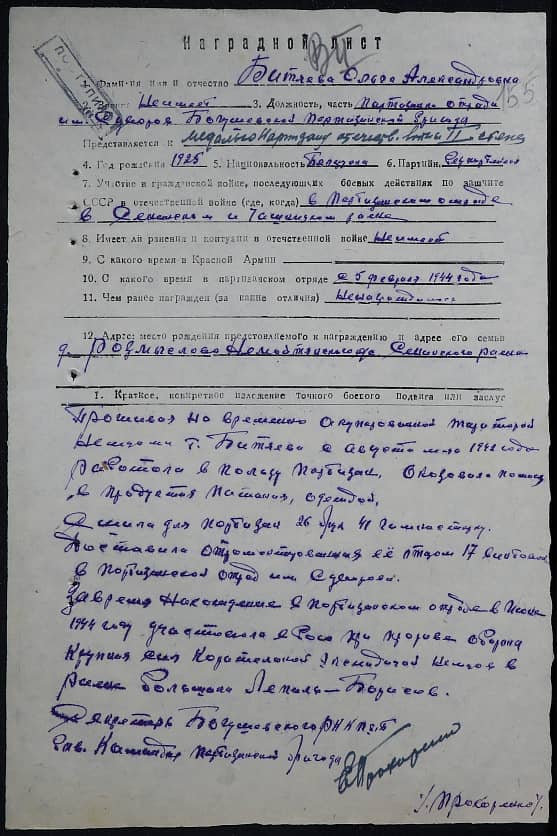 Наградной лист
155
1. Фамилия имя и отчество Битяева Ольга Александровна
2. Неимеет 3. Должность, часть Партизанка отряда
им. Богушевской Партизанской бригады
Представляется к медалью Партизану отечеств. войны II степени
4. Год рождения 1925 5. Национальность 6. Партийн.
7. Участие в гражданской войне, последующих боевых действиях по защите
СССР в отечественной войне (где, когда) в Партизанском отряде
в Сенненском и районе
8. Имеет ли ранения и контузии в отечественной войне неимеет
9. С какого время в Красной Армии
10. С какого время в партизанском отряде с 5 февраля 1944 года
11. Чем ранее награжден (за какие отличия)
12. Адрес: место рождения представляемого к награждению и адрес его семьи
д. Размыслово Сенненского района
1. Краткое, конкретное изложение точного боевого подвига или заслуг
Проживая на временно окупированной
Немцами т. Битяева с августа м-ца 1942 года
работала в пользу партизан. Оказовала помощь
в продуктах питания, одеждой.
Сшила для партизан 26 брук 41 гимнастерку.
Доставила её отцом 17 винтовок
в партизанский отряд им
За время нахождение в партизанском отряде в июне
1944 году участвовала в бою при прорыве оборона
крупная сил карательной экспедичей немцов в
районе Лепель-Борисов.
Секретарь Богушевского РК КП(б)Б
Командир партизанской бригады